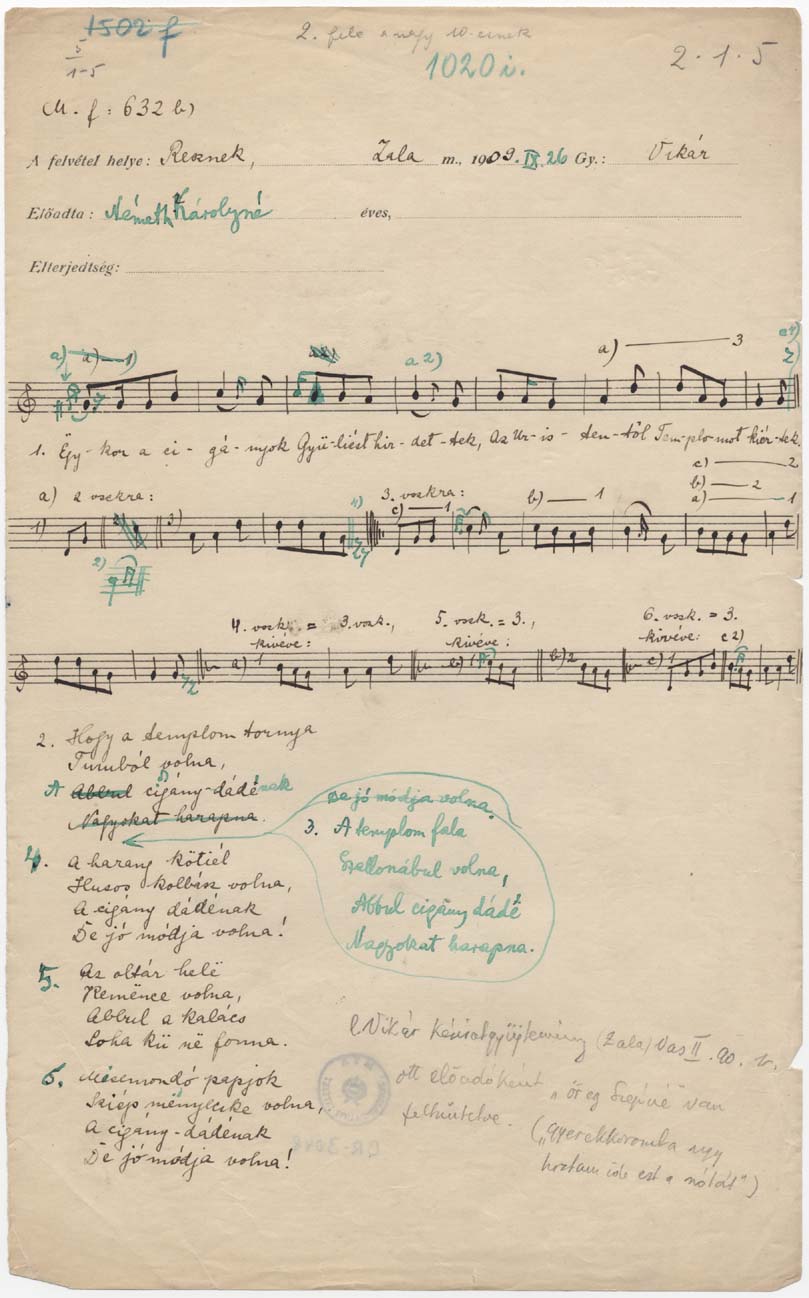 1502 f
2. fele a nagy 10-esnek
1020 i.
2·1·5
5
1-5
(M. f: 632 b)
A felvétel helye: Resznek, Zala m., 1909. IX. 26 Gy.: Vikár
Előadta: Németh Károlyné éves,
Elterjedtség:
a) a) 1) a 2) a) 3
1. Ëgy-kor a ci-gá-nyok Gyü-liést hir-det-tek, Az Ur-is-ten-től Tem-plo-mot kiér-tek.
c) 2
b) 2
a) 2 vszkra: 3. vszkra: b) 1 a) 1
c) 1
1) 3)
2)
4. vszk. = 3. vszk., 5. vszk. = 3., 6. vszk. = 3.
kivéve: kivéve: kivéve: c 2)
a) 1 b) 2 c) 1
2. Hogy a templom tornya
Turuból volna,
A Abbul cigány-dádénak
Nagyokat harapna.
De jó módja volna.
3. A templom fala
Szallonábul volna,
Abbul cigány dádé
Nagyokat harapna.
4. A harang kötiél
Husos kolbász volna,
A cigány dádénak
De jó módja volna!
5. Az oltár helë
Kemënce volna,
Abbul a kalács
Soha kü në fonna.
6. Misemondó papjok
Sziép mënyecske volna,
A cigány-dádénak
De jó módja volna!
Vikár kéziratgyűjtemény (Zala) Vas II. 90.
ott előadóként „öreg Szepiné" van
feltüntetve.
(„gyerekkoromba ugy
hoztam ide ezt a nótát")